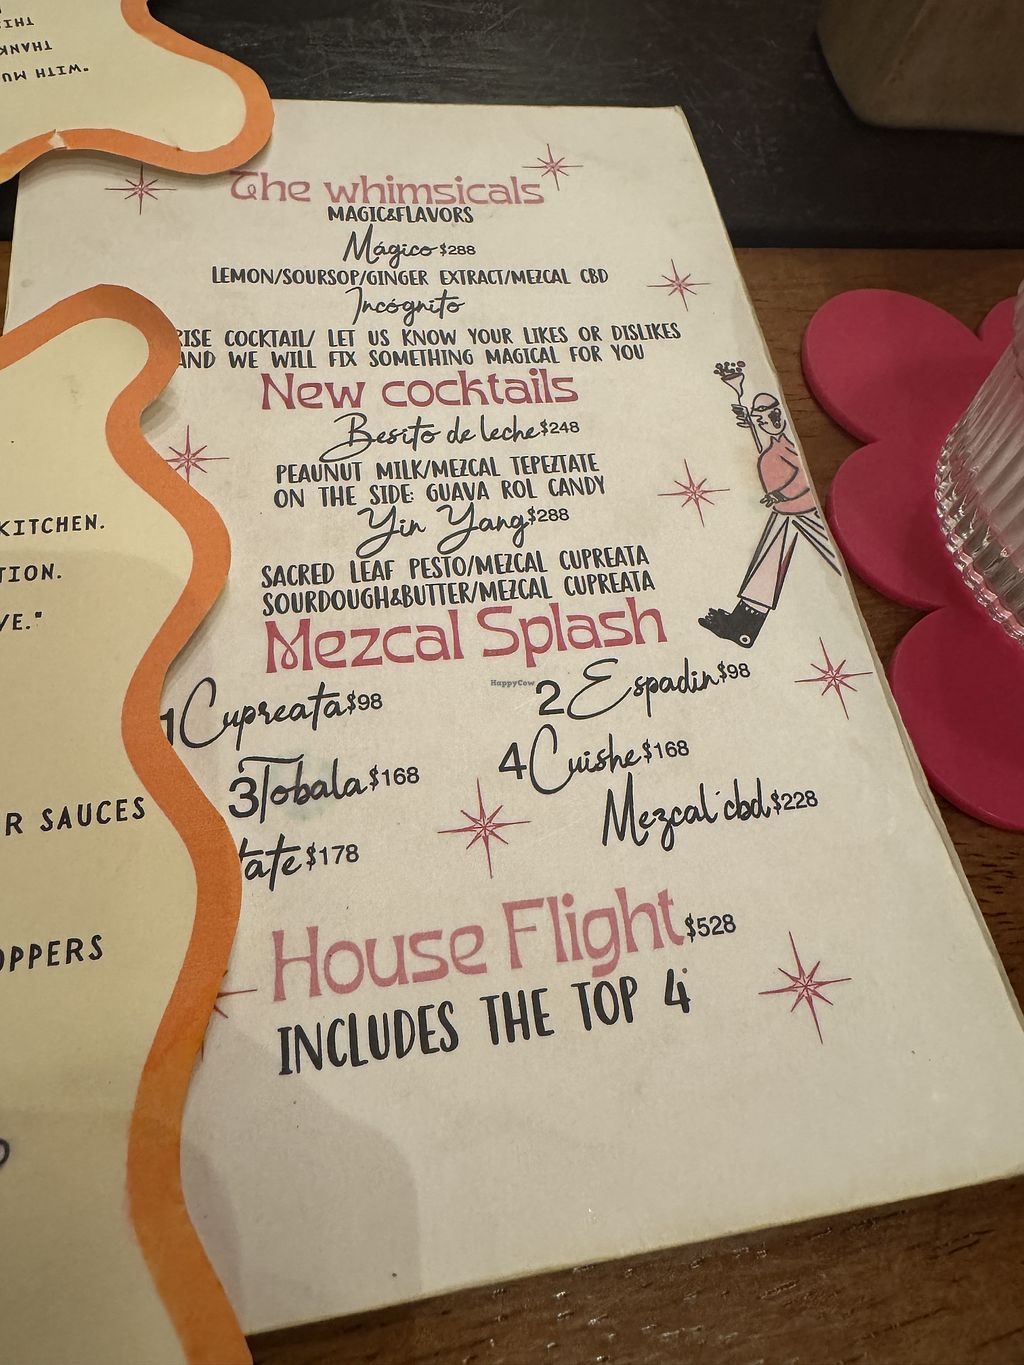 "WITH MU
THANK
THI
The whimsicals
MAGIC&FLAVORS
Mágico $288
LEMON/SOURSOP/GINGER EXTRACT/MEZCAL CBD
Incógnito
RISE COCKTAIL/ LET US KNOW YOUR LIKES OR DISLIKES
AND WE WILL FIX SOMETHING MAGICAL FOR YOU
New cocktails
Besito de leche $248
PEAUNUT MILK/MEZCAL TEPEZTATE
ON THE SIDE: GUAVA ROL CANDY
Yin Yang $288
SACRED LEAF PESTO/MEZCAL CUPREATA
SOURDOUGH&BUTTER/MEZCAL CUPREATA
Mezcal Splash
1 Cupreata $98
2 Espadin $98
3 Tobala $168
4 Cuishe $168
tate $178
Mezcal cbd $228
House Flight $528
INCLUDES THE TOP 4
KITCHEN.
TION.
VE."
R SAUCES
OPPERS
HappyCow